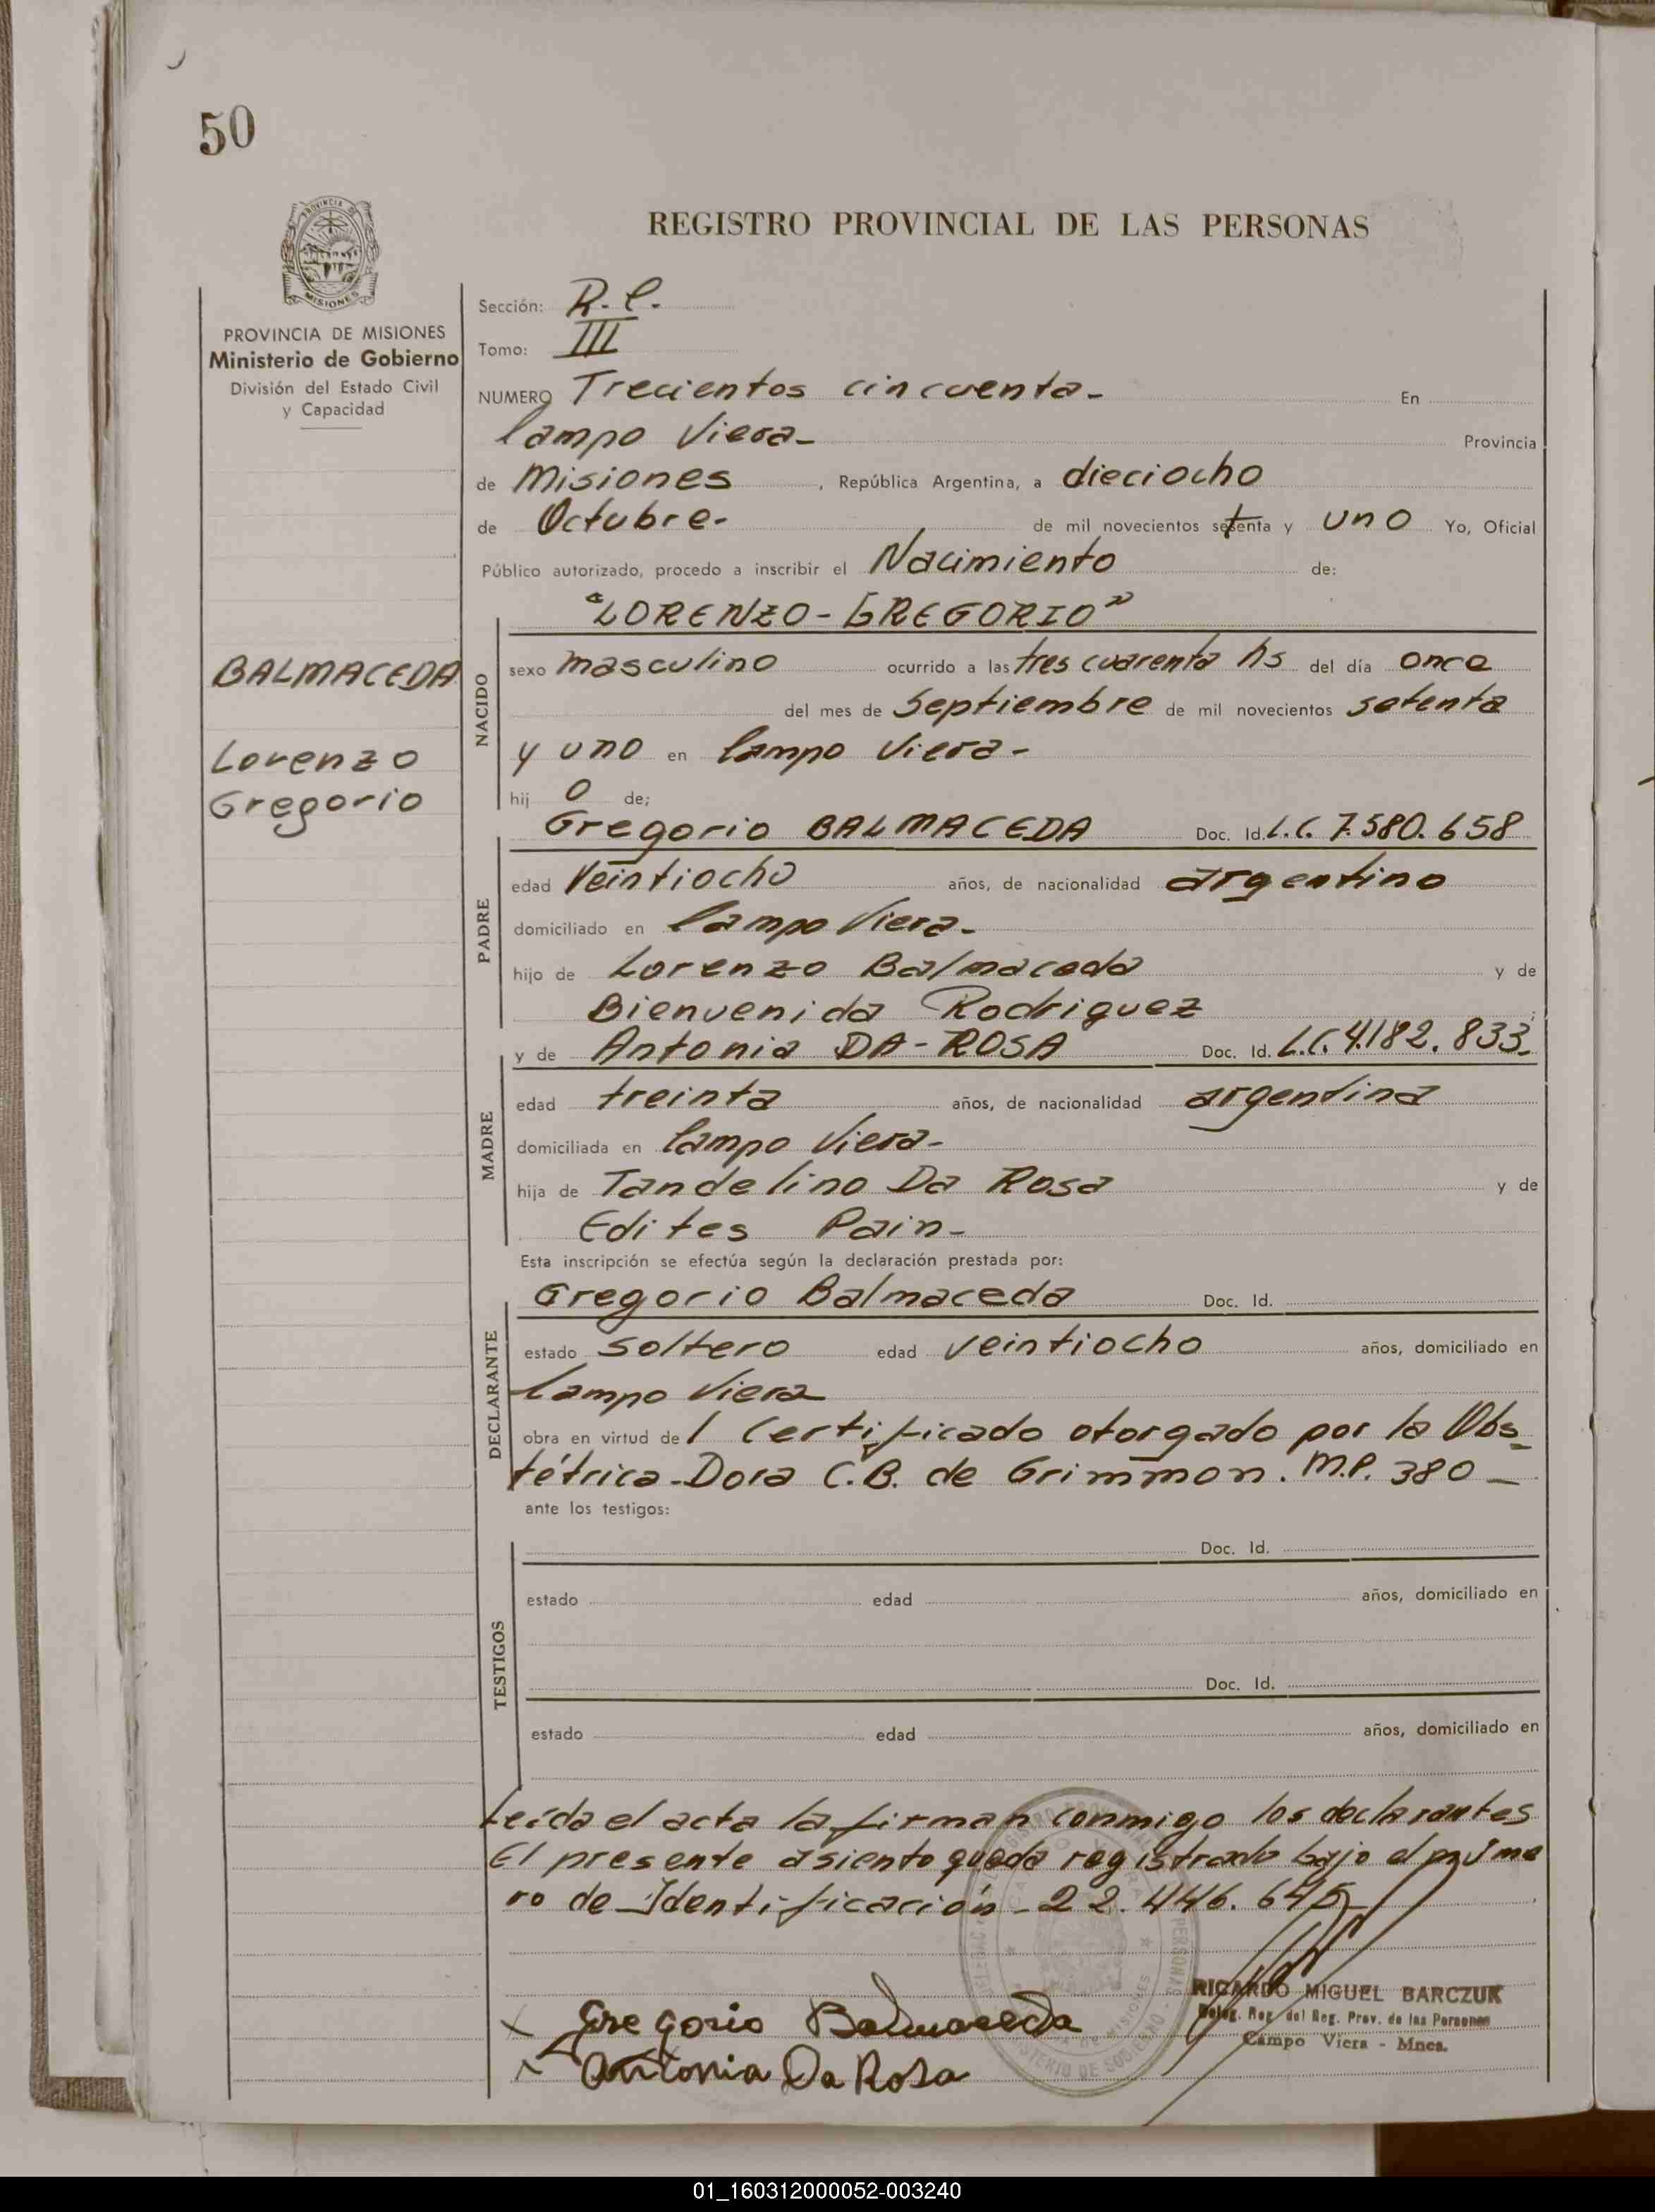 50
PROVINCIA DE MISIONES
Ministerio de Gobierno
División del Estado Civil
y Capacidad
BALMACEDA
Lorenzo
Gregorio
REGISTRO PROVINCIAL DE LAS PERSONAS
Sección: R.C.
Tomo: III
NUMERO Trecientos cincuenta- En
Campo Viera- Provincia
de Misiones, República Argentina, a dieciocho
de Octubre- de mil novecientos setenta y uno Yo, Oficial
Público autorizado, procedo a inscribir el Nacimiento de:
"LORENZO-GREGORIO"
NACIDO
sexo masculino ocurrido a las tres cuarenta hs del día once
del mes de Septiembre de mil novecientos setenta
y uno en Campo Viera-
hij o de;
Gregorio BALMACEDA Doc. Id. L.C. 7.580.658
PADRE
edad Veintiocho años, de nacionalidad argentino
domiciliado en Campo Viera-
hijo de Lorenzo Balmaceda y de
Bienvenida Rodriguez
y de Antonia DA-ROSA Doc. Id. L.C. 4.182.833.
MADRE
edad treinta años, de nacionalidad argentina
domiciliada en Campo Viera-
hija de Tandelino Da Rosa y de
Edites Pain-
Esta inscripción se efectúa según la declaración prestada por:
Gregorio Balmaceda Doc. Id.
DECLARANTE
estado soltero edad veintiocho años, domiciliado en
Campo Viera
obra en virtud de 1 Certificado otorgado por la Obs-
tétrica-Dora C.B. de Grimmon. M.P. 380-
ante los testigos:
Doc. Id.
TESTIGOS
estado edad años, domiciliado en
Doc. Id.
estado edad años, domiciliado en
Leída el acta la firman conmigo los declarantes
El presente asiento queda registrado bajo el núme
ro de Identificación-22.446.645-
RICARDO MIGUEL BARCZUK
Deleg. Reg. del Reg. Prov. de las Personas
Campo Viera - Mnes.
x Gregorio Balmaceda
x Antonia Da Rosa
01_160312000052-003240